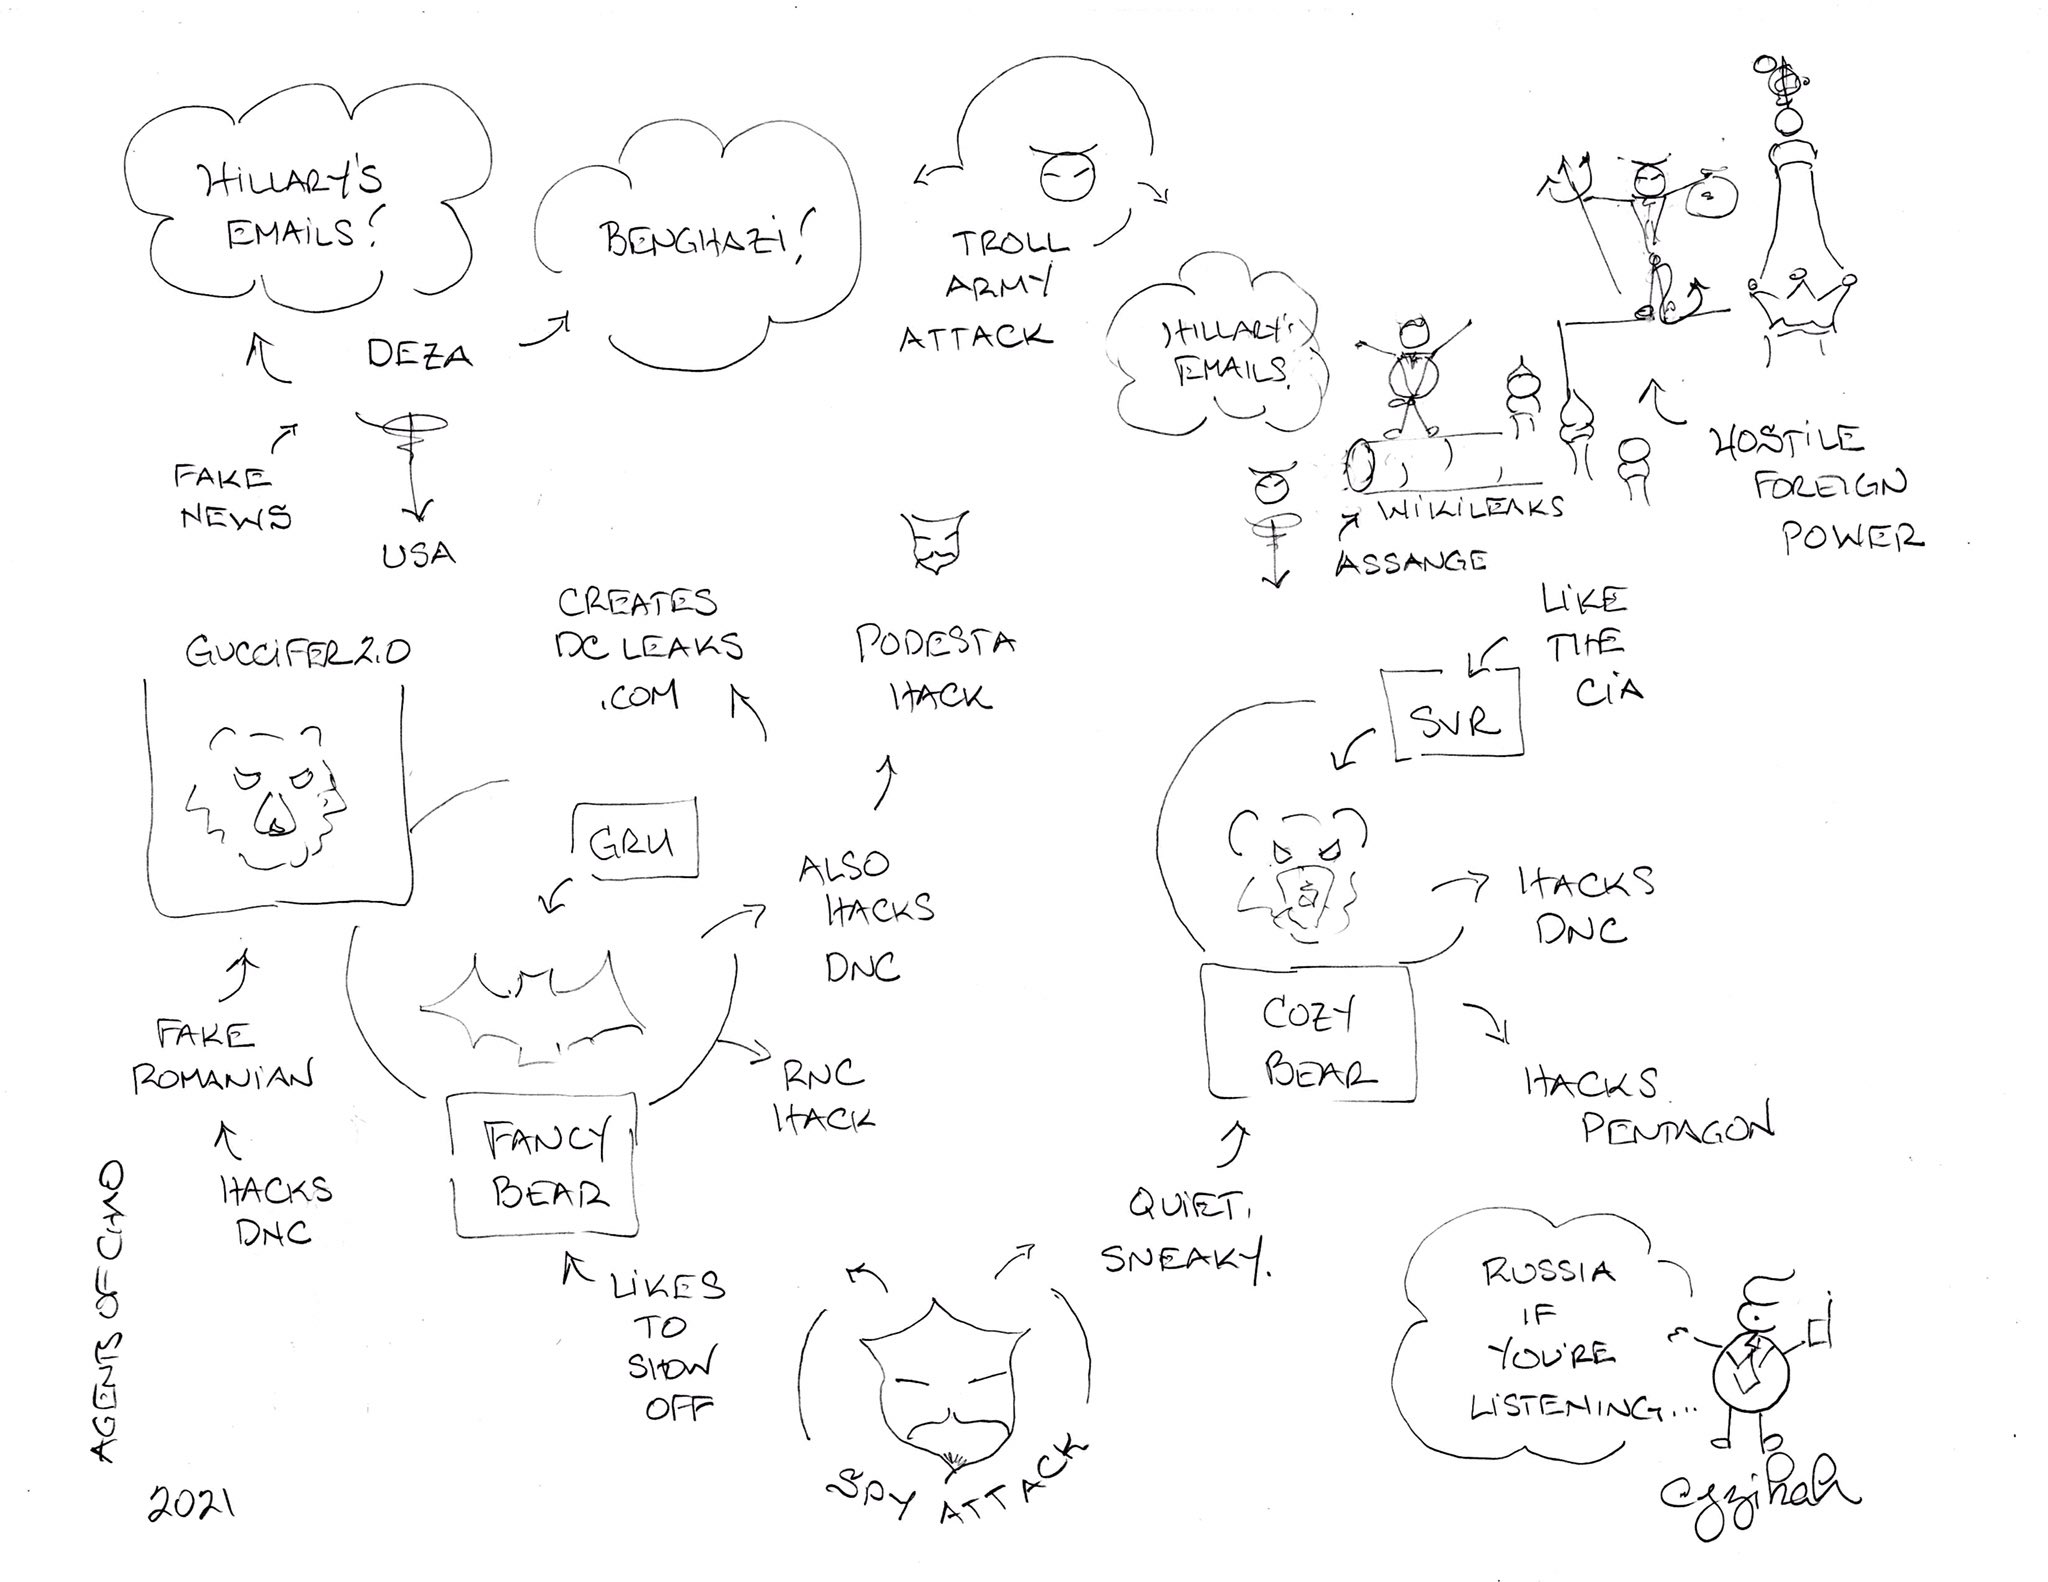 HILLARY'S
EMAILS!
BENGHAZI!
DEZA
FAKE
NEWS
USA
TROLL
ARMY
ATTACK
HILLARY'S
EMAILS.
WIKILEAKS
ASSANGE
HOSTILE
FOREIGN
POWER
GUCCIFER 2.0
CREATES
DC LEAKS
.COM
PODESTA
HACK
LIKE
THE
CIA
SVR
GRU
ALSO
HACKS
DNC
HACKS
DNC
FAKE
ROMANIAN
HACKS
DNC
FANCY
BEAR
RNC
HACK
COZY
BEAR
HACKS
PENTAGON
LIKES
TO
SHOW
OFF
QUIET.
SNEAKY.
SPY ATTACK
RUSSIA
IF
YOU'RE
LISTENING...
AGENTS OF CHAO
2021